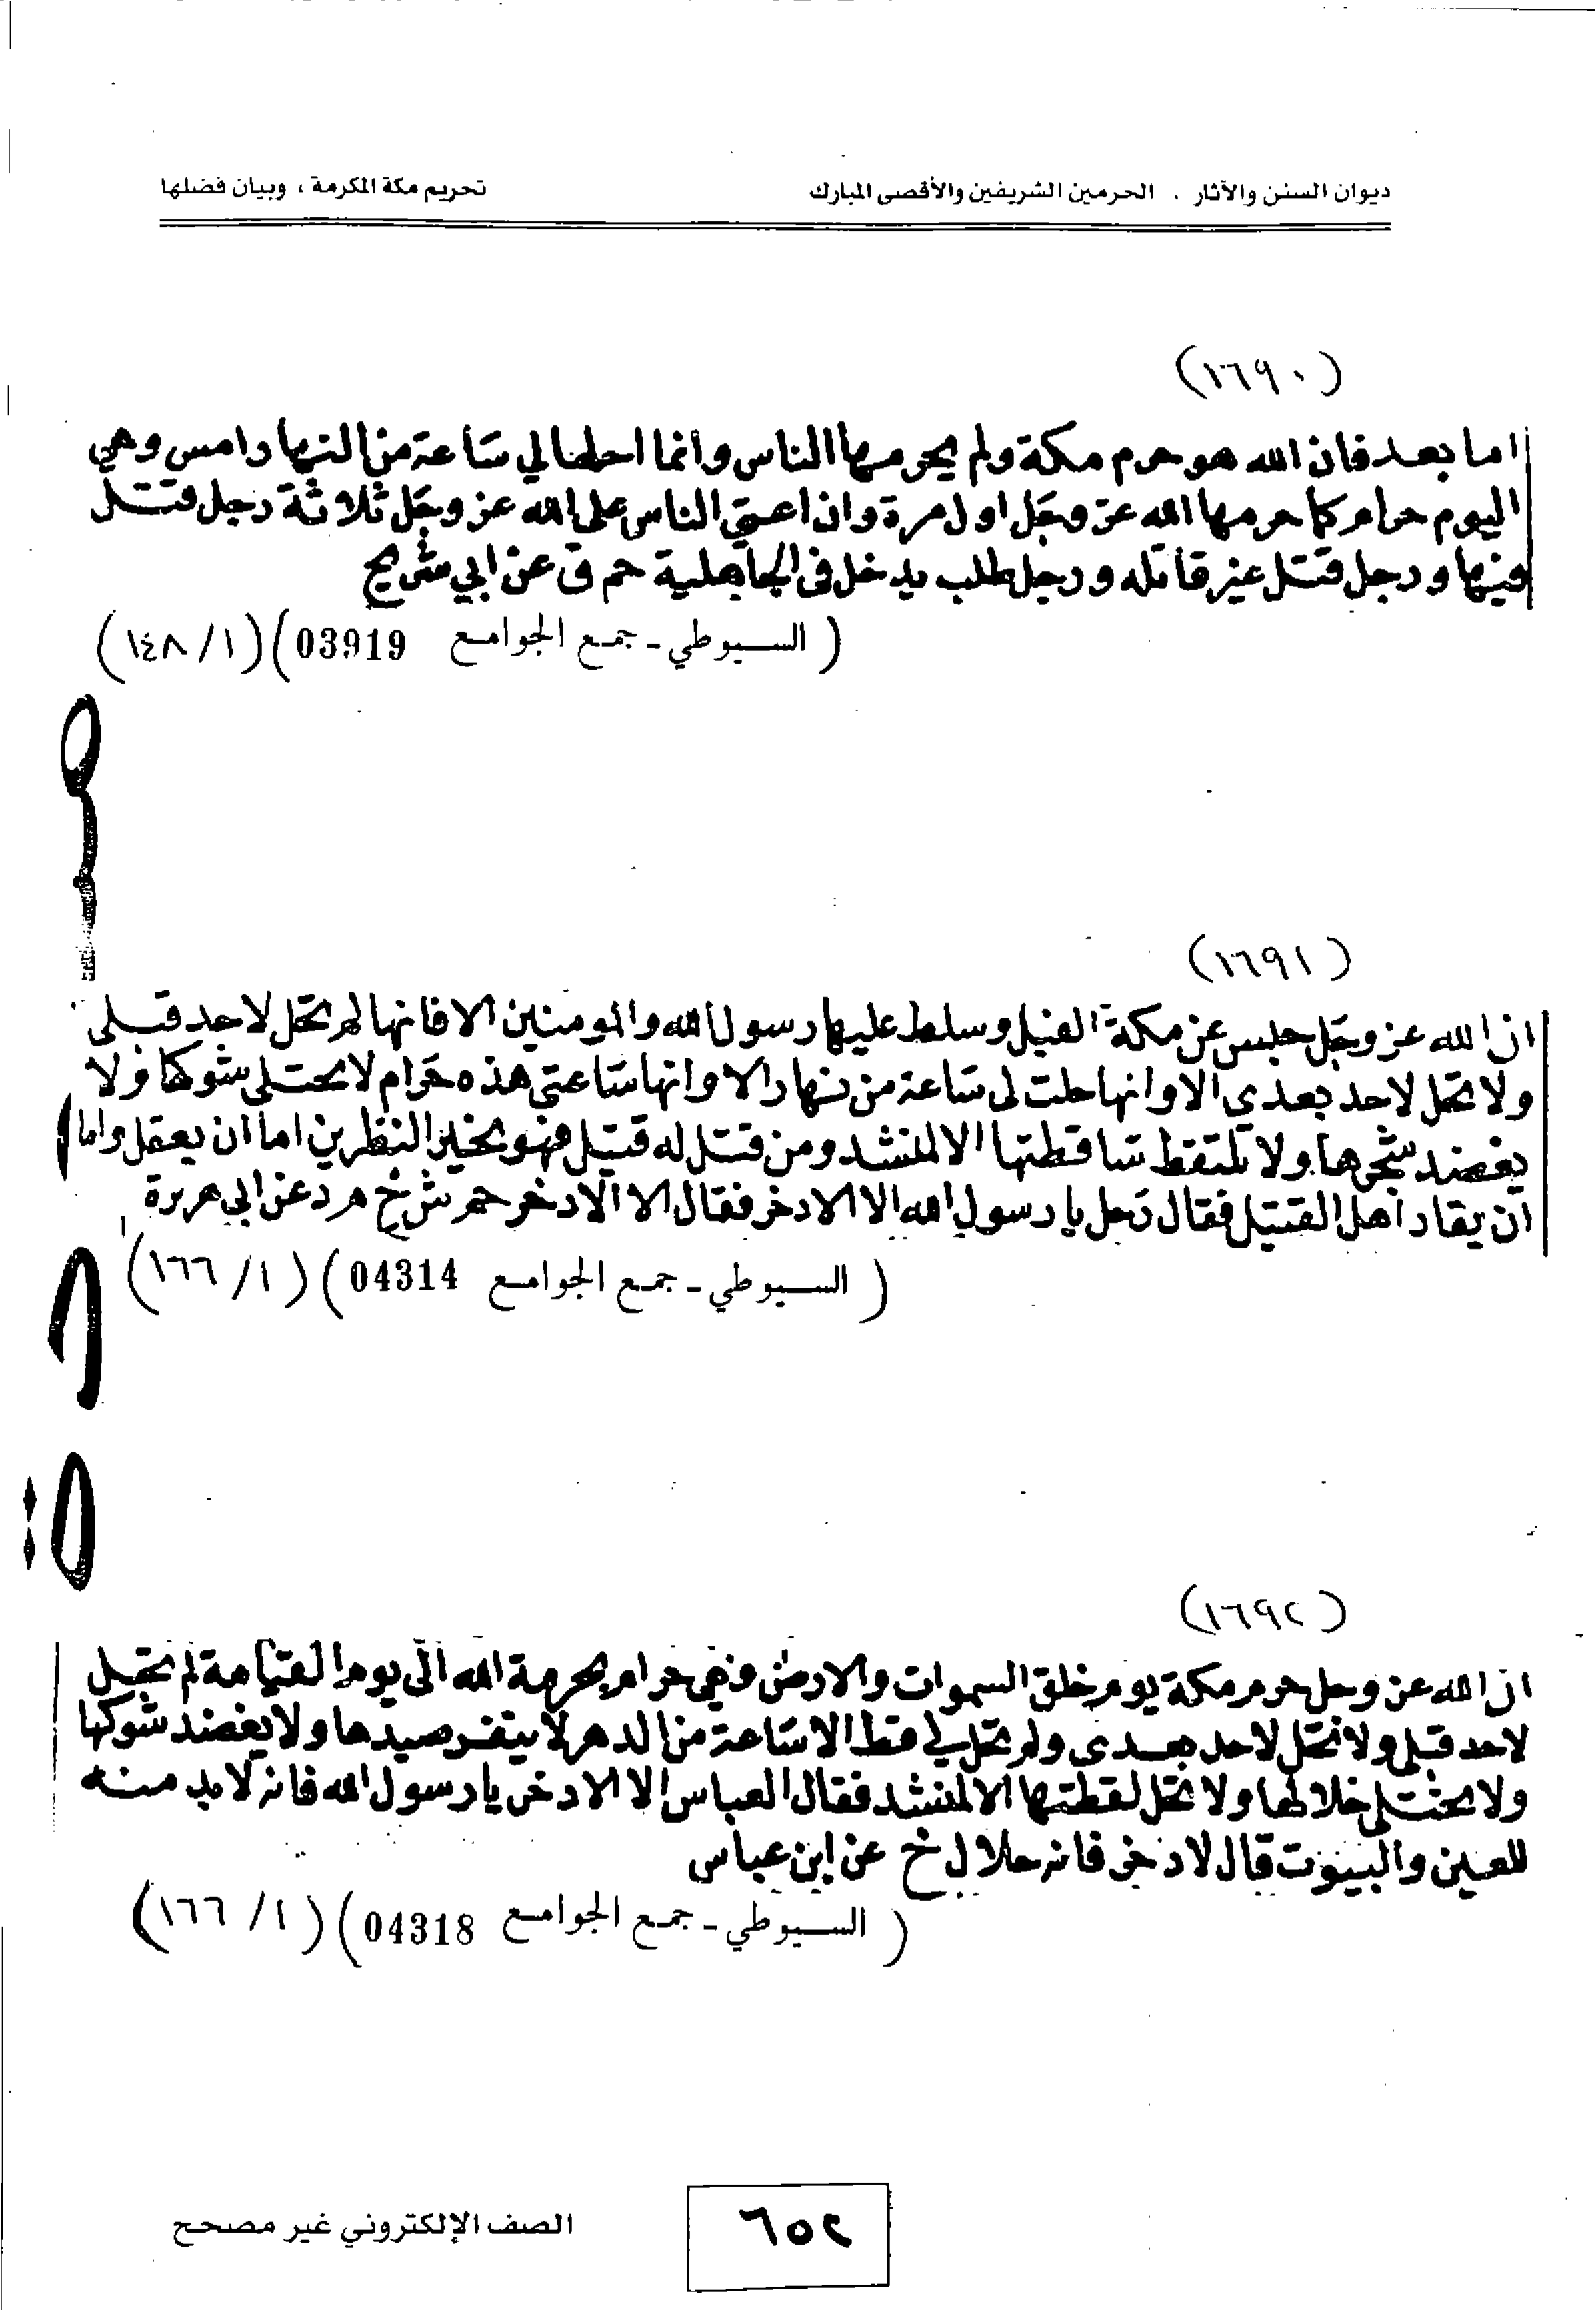 ديوان السنن والآثار . الحرمين الشريفين والأقصى المبارك
تحريم مكة المكرمة ، وبيان فضلها
(١٦٩٠)
اما بعد فان الله هو حرم مكة ولم يحرمها الناس وانما احلها لي ساعة من النهار امس وهي
اليوم حرام كما حرمها الله عز وجل اول مرة وان اعتى الناس على الله عز وجل ثلاثة رجل قتل
فيها ورجل قتل غير قاتله ورجل طلب بدخل في الجاهلية حم ق عن ابي شريح
(السيوطي - جمع الجوامع 03919) (١/١٤٨)
(١٦٩١)
ان الله عز وجل حبس عن مكة الفيل وسلط عليها رسول الله والمومنين الا فانها لم تحل لاحد قبلى
ولا تحل لاحد بعدي الا وانها حلت لى ساعة من نهار الا وانها ساعتى هذه حرام لا يختلى شوكها ولا
يعضد شجرها ولا يلتقط ساقطتها الا لمنشد ومن قتل له قتيل فهو بخير النظرين اما ان يعقل واما
ان يقاد اهل القتيل فقال رجل يا رسول الله الا الادخر فقال الا الادخر حم ش خ م د عن ابي هريرة
(السيوطي - جمع الجوامع 04314) (١/١٦٦)
(١٦٩٢)
ان الله عز وجل حرم مكة يوم خلق السموات والارض وهي حرام بحرمة الله الى يوم القيامة لم تحل
لاحد قبلى ولا تحل لاحد بعدى ولم تحل لي قط الا ساعة من الدهر لا ينفر صيدها ولا يعضد شوكها
ولا يختلى خلالها ولا تحل لقطتها الا لمنشد فقال العباس الا الادخر يا رسول الله فانه لابد منه
للعين والبيوت قال الادخر فانه حلال خ عن ابن عباس
(السيوطي - جمع الجوامع 04318) (١/١٦٦)
٦٥٢
الصف الإلكتروني غير مصحح